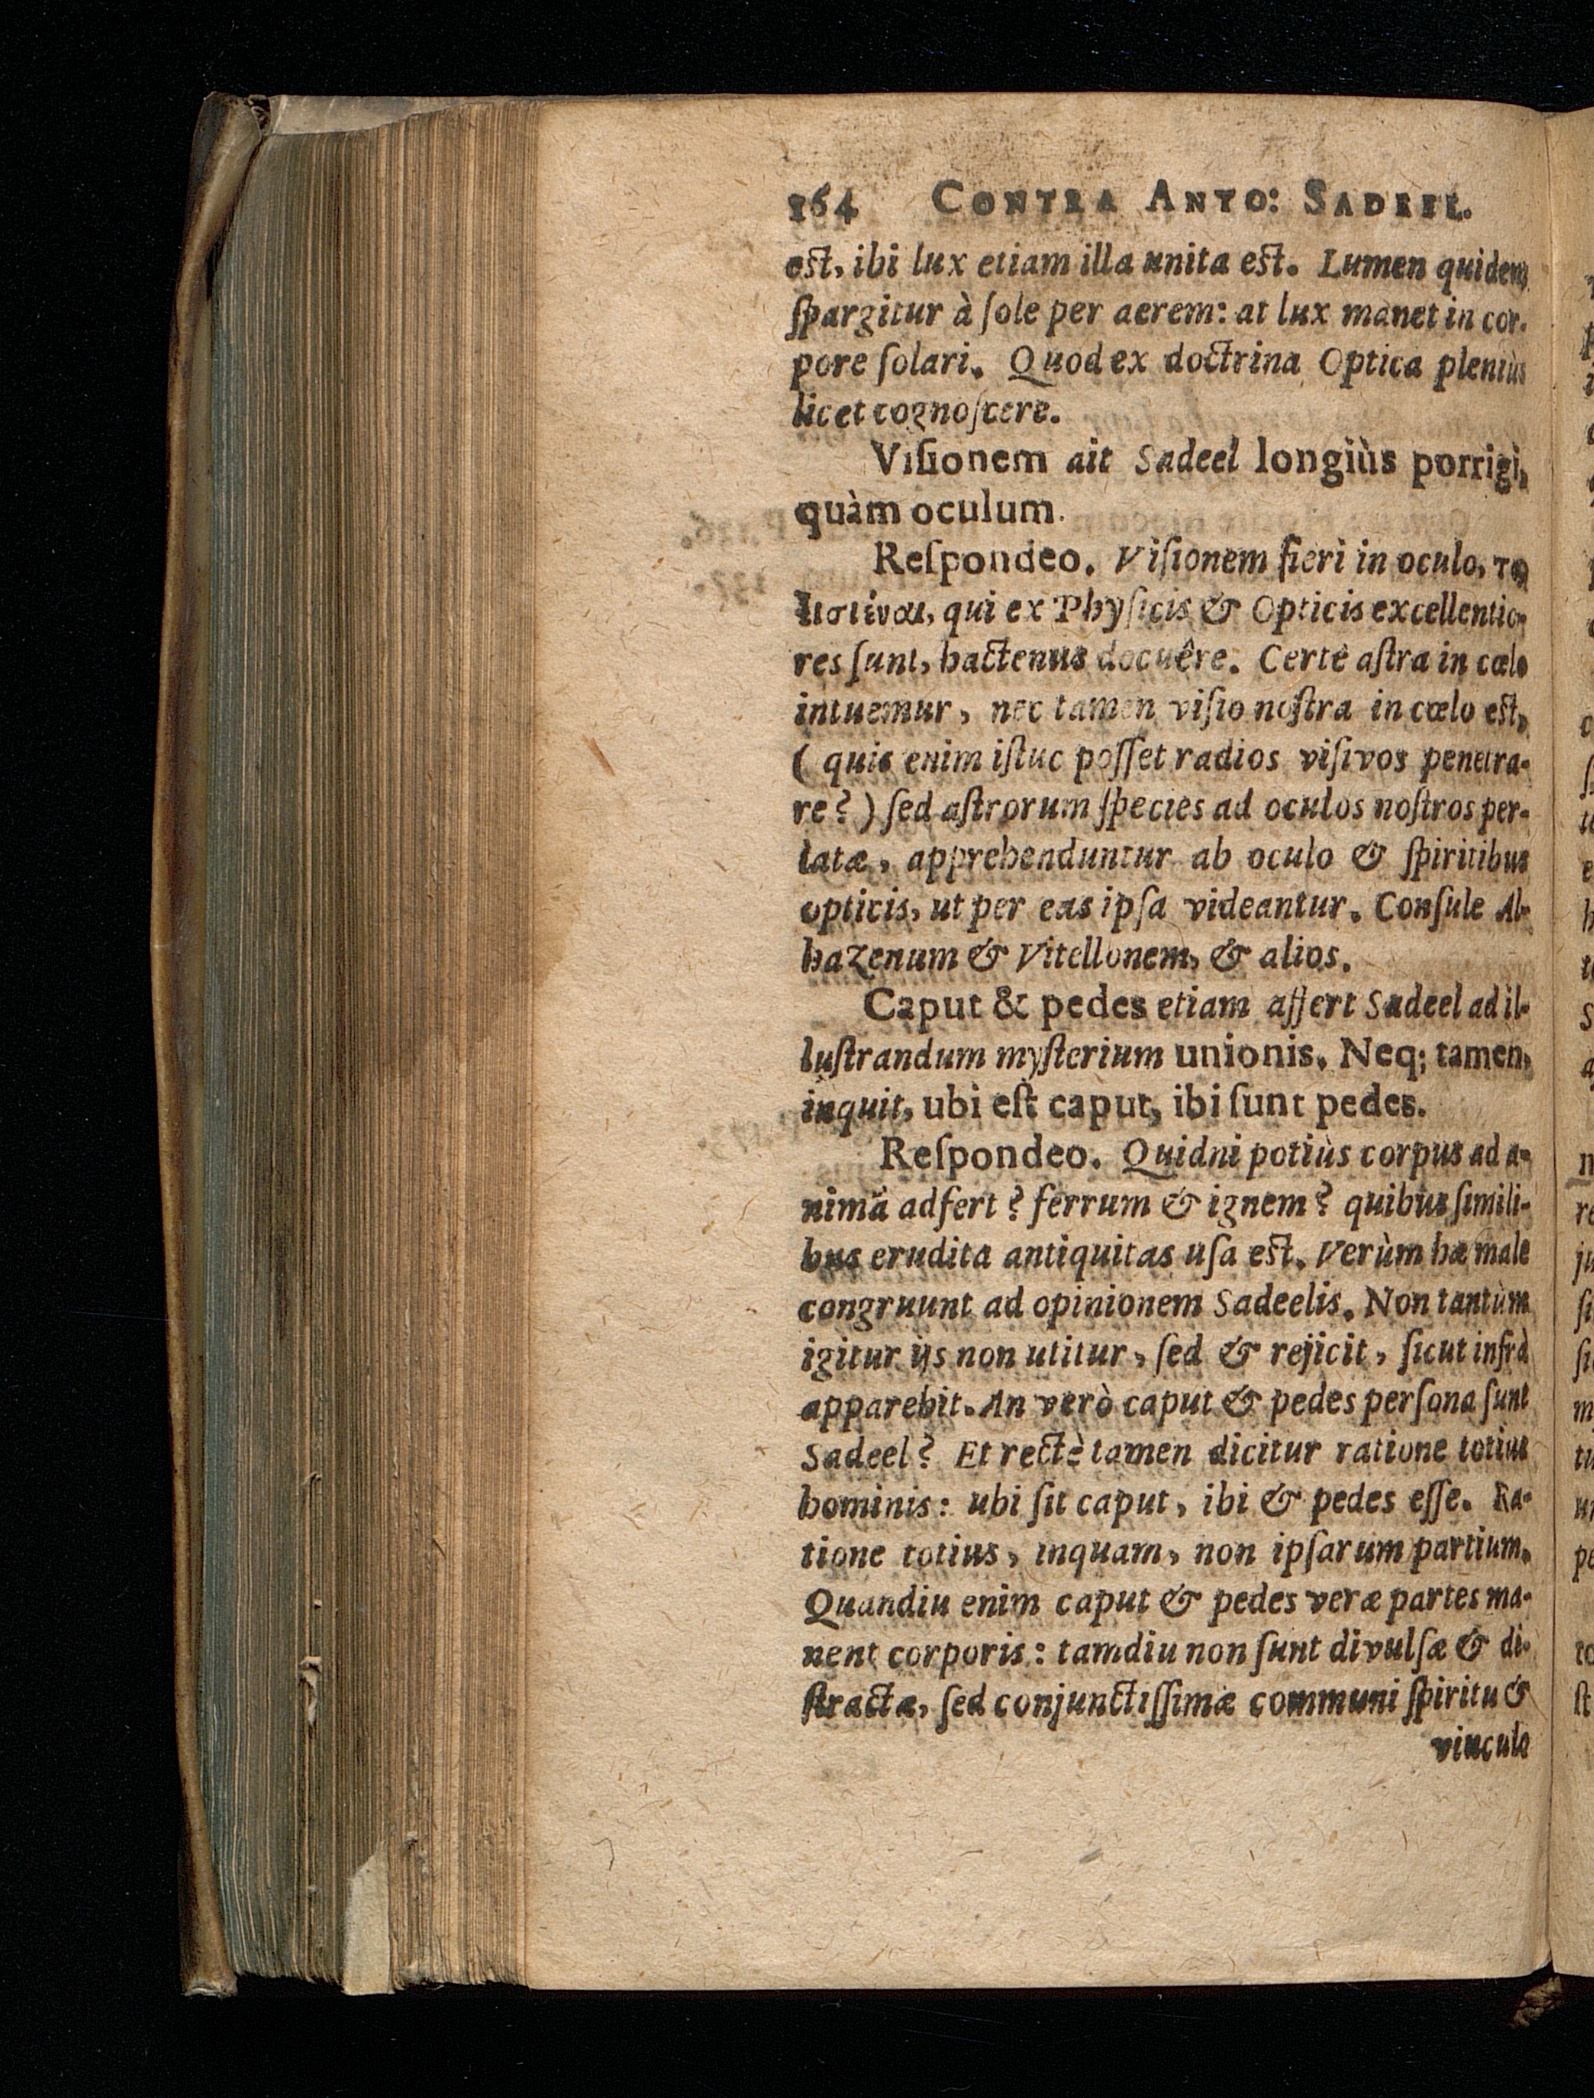 164 CONTRA ANTO: SADEEL.
est, ibi lux etiam illa unita est. Lumen quidem
ſpargitur à ſole per aerem: at lux manet in cor-
pore ſolari. Quod ex doctrina Optica pleniùs
licet cognoſcere.
Viſionem ait Sadeel longiùs porrigi,
quàm oculum.
Reſpondeo. Viſionem fieri in oculo,
qui ex Phyſicis & Opticis excellentio-
res ſunt, hactenus docuêre. Certè aſtra in cælo
intuemur, nec tamen viſio noſtra in cœlo est,
( quis enim iſtuc poſſet radios viſivos penetra-
re? ) ſed aſtrorum ſpecies ad oculos noſtros per-
latæ, apprehenduntur ab oculo & ſpiritibus
opticis, ut per eas ipſa videantur. Conſule Al-
hazenum & Vitellonem, & alios.
Caput & pedes etiam affert Sadeel ad il-
luſtrandum myſterium unionis. Neq; tamen,
inquit, ubi eſt caput, ibi ſunt pedes.
Reſpondeo. Quidni potiùs corpus ad a-
nimã adfert? ferrum & ignem? quibus ſimili-
bus erudita antiquitas uſa est. Verùm hæ male
congruunt ad opinionem Sadeelis. Non tantùm
igitur ijs non utitur, ſed & rejicit, ſicut infrà
apparebit. An verò caput & pedes perſona ſunt
Sadeel? Et rectè tamen dicitur ratione totius
hominis: ubi ſit caput, ibi & pedes eſſe. Ra-
tione totius, inquam, non ipſarum partium.
Quandiu enim caput & pedes veræ partes ma-
nent corporis: tamdiu non ſunt divulſæ & di-
ſtractæ, ſed conjunctiſſimæ communi ſpiritu &
vinculo